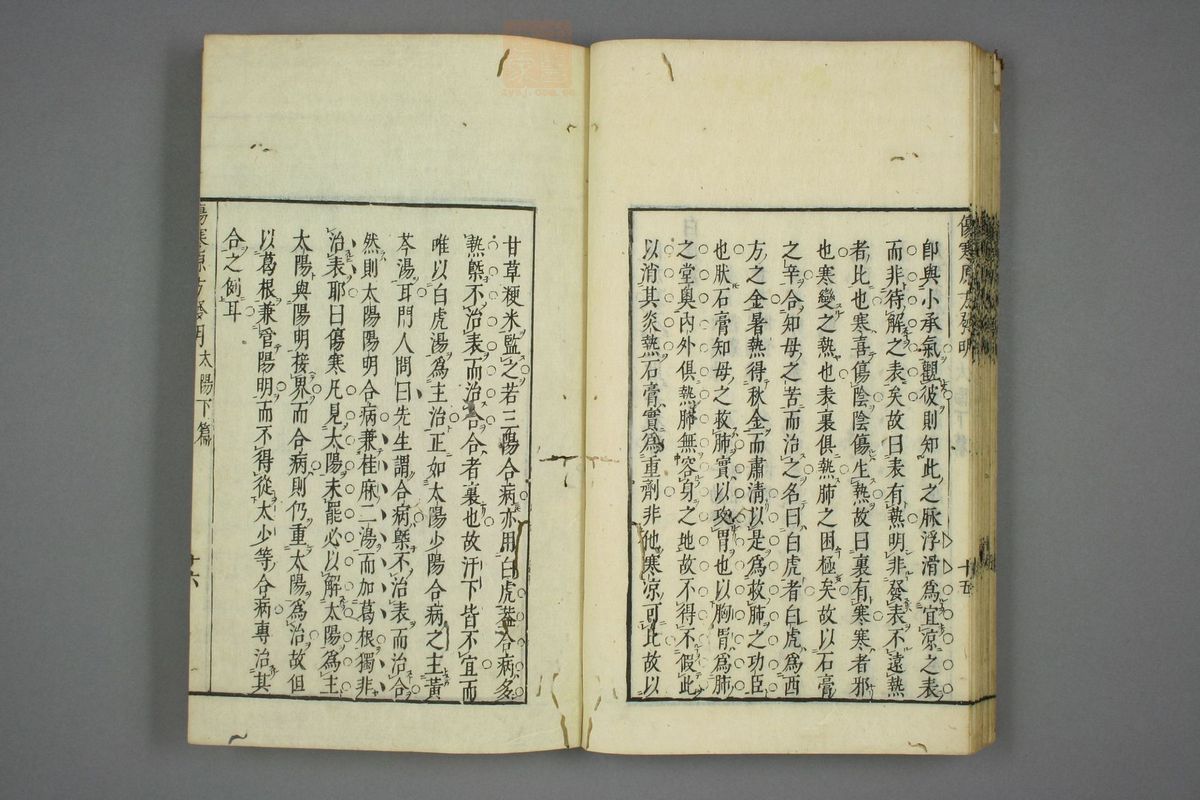 傷寒原方發明
十五
即與小承氣觀彼則知此之脉浮滑爲宜凉之表
而非待解之表矣故曰表有熱明非發表不遠熱
者比也寒喜傷陰陰傷生熱故曰裏有寒寒者邪
也寒變之熱也表裏俱熱肺之困極矣故以石膏
之辛合知母之苦而治之名曰白虎者白虎爲西
方之金暑熱得秋金而肅清以是爲救肺之功臣
也狀石膏知母之救肺實以攻胃也以胸胃爲肺
之堂奥内外俱熱肺無容身之地故不得不假此
以消其炎熱石膏實爲重劑非他寒凉可比故以
甘草粳米監之若三陽合病亦用白虎葢合病多
熱槩不治表而治合合者裏也故汗下皆不宜而
唯以白虎湯爲主治正如太陽少陽合病之主黃
芩湯耳門人問曰先生謂合病槩不治表而治合
然則太陽陽明合病兼桂麻二湯而加葛根獨非
治表耶曰傷寒凡見太陽未罷必以解太陽爲主
太陽與陽明接界而合病則仍重太陽爲治故但
以葛根兼管陽明而不得從太少等合病專治其
合之例耳
傷寒原方發明
太陽下篇
十六